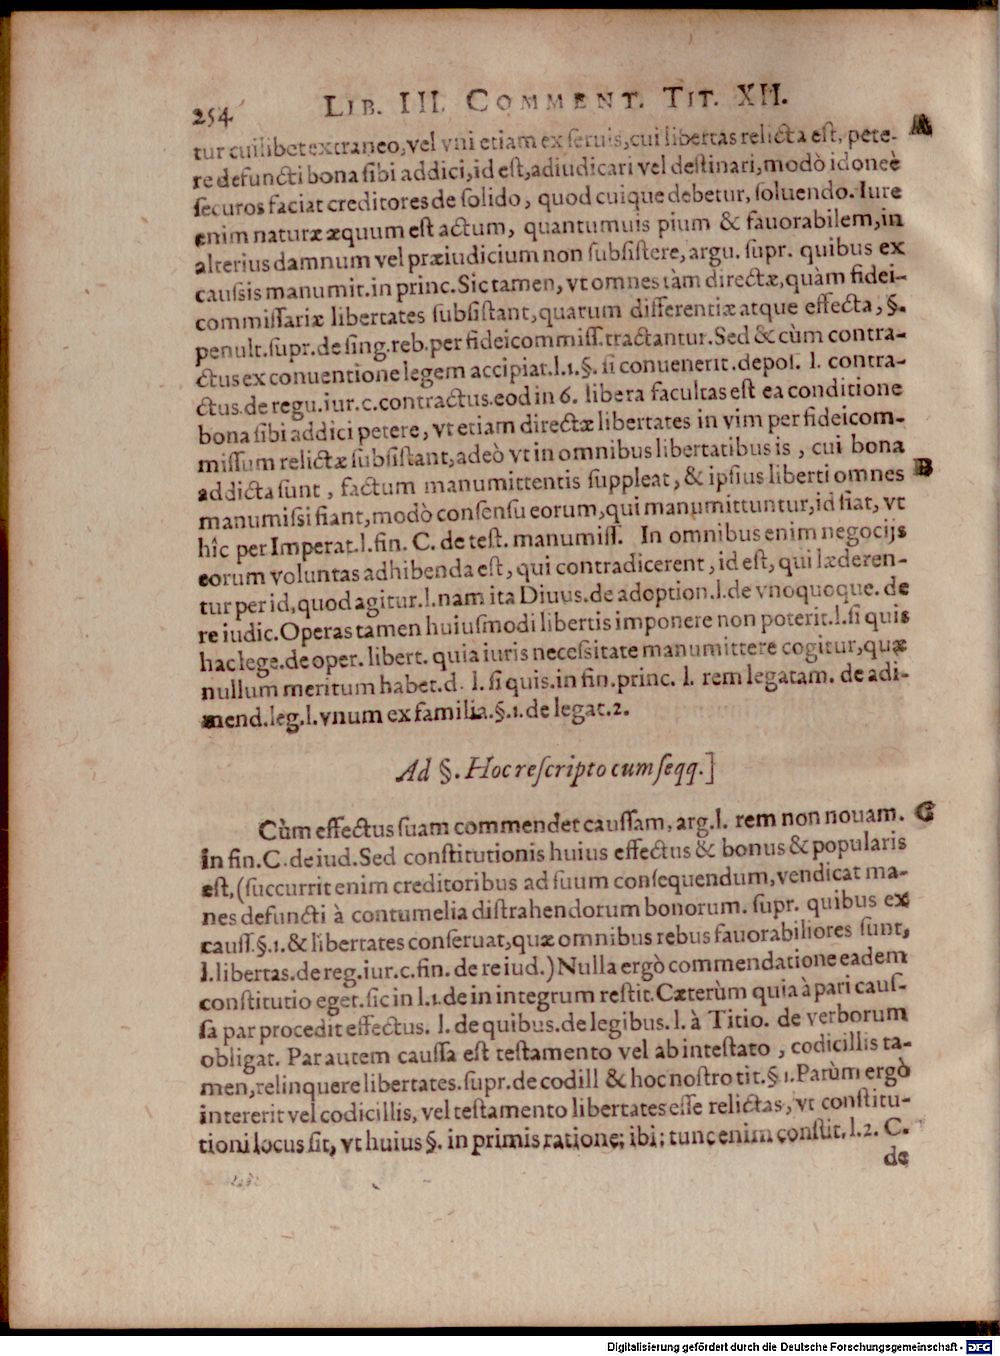 254 LIB. III. COMMENT. TIT. XII.
tur cuilibet extraneo, vel vni etiam ex seruis, cui libertas relicta est, pete- A
re defuncti bona sibi addici, id est, adiudicari vel destinari, modò idoneè
securos faciat creditores de solido, quod cuique debetur, soluendo. Iure
enim naturæ æquum est actum, quantumuis pium & fauorabilem, in
alterius damnum vel præiudicium non subsistere, argu. supr. quibus ex
caussis manumit. in princ. Sic tamen, vt omnes tàm directæ, quàm fidei-
commissariæ libertates subsistant, quarum differentiæ atque effecta, §.
penult. supr. de sing. reb. per fideicommiss. tractantur. Sed & cùm contra-
ctus ex conuentione legem accipiat. l. 1. §. si conuenerit. depos. l. contra-
ctus. de regu. iur. c. contractus. eod in 6. libera facultas est ea conditione
bona sibi addici petere, vt etiam directæ libertates in vim per fideicom-
missum relictæ subsistant, adeò vt in omnibus libertatibus is, cui bona
addicta sunt, factum manumittentis suppleat, & ipsius liberti omnes B
manumissi fiant, modò consensu eorum, qui manumittuntur, id fiat, vt
hîc per Imperat. l. fin. C. de test. manumiss. In omnibus enim negocijs
eorum voluntas adhibenda est, qui contradicerent, id est, qui læderen-
tur per id, quod agitur. l. nam ita Diuus. de adoption. l. de vnoquoque. de
re iudic. Operas tamen huiusmodi libertis imponere non poterit. l. si quis
hac lege. de oper. libert. quia iuris necessitate manumittere cogitur, quæ
nullum meritum habet. d. l. si quis. in fin. princ. l. rem legatam. de adi-
mend. leg. l. vnum ex familia. §. 1. de legat. 2.
Ad §. Hoc rescripto cum seqq.]
Cùm effectus suam commendet caussam, arg. l. rem non nouam. C
in fin. C. de iud. Sed constitutionis huius effectus & bonus & popularis
est, (succurrit enim creditoribus ad suum consequendum, vendicat ma-
nes defuncti à contumelia distrahendorum bonorum. supr. quibus ex
causs. §. 1. & libertates conseruat, quæ omnibus rebus fauorabiliores sunt,
l. libertas. de reg. iur. c. fin. de re iud.) Nulla ergò commendatione eadem
constitutio eget. sic in l. 1. de in integrum restit. Cæterùm quia à pari caus-
sa par procedit effectus. l. de quibus. de legibus. l. à Titio. de verborum
obligat. Par autem caussa est testamento vel ab intestato, codicillis ta-
men, relinquere libertates. supr. de codill & hoc nostro tit. § 1. Parùm ergò
intererit vel codicillis, vel testamento libertates esse relictas, vt constitu-
tioni locus sit, vt huius §. in primis ratione; ibi; tunc enim constit. l. 2. C.
de
Digitalisierung gefördert durch die Deutsche Forschungsgemeinschaft - DFG